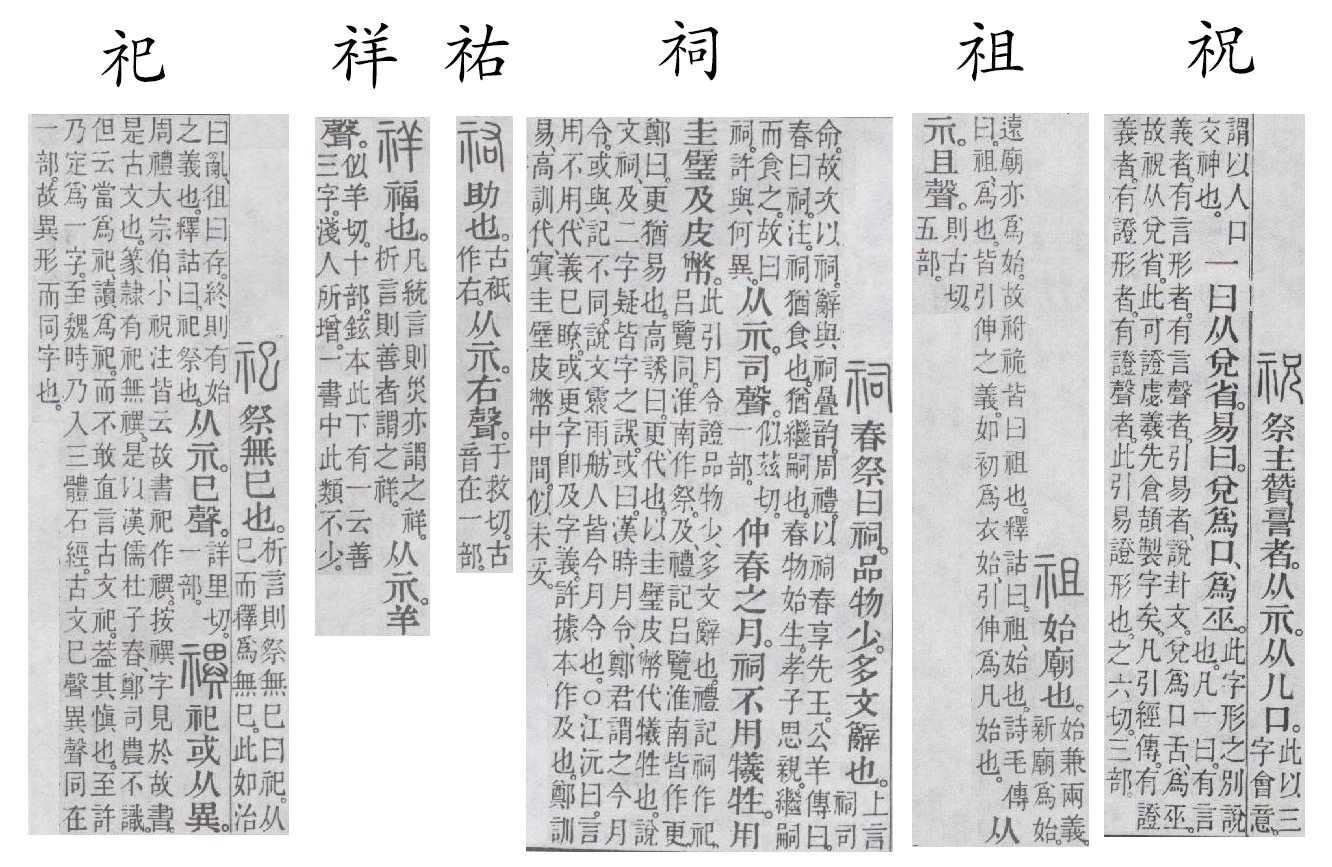 祀 祥 祐 祠 祖 祝
祀祭無巳也。析言則祭無巳曰祀。从巳而釋爲無巳。此如治
曰亂、徂曰存。終則有始之義也。釋詁曰。祀祭也。从示。巳聲。詳里切。一部。禩祀或从異。
周禮大宗伯小祝注皆云。故書祀作禩。按禩字見於故書。
是古文也。篆隷有祀無禩。是以漢儒杜子春、鄭司農不識。
但云當爲祀讀爲祀。而不敢直言古文祀。葢其愼也。至許
乃定爲一字。至魏時乃入三體石經。古文巳聲異聲同在
一部。故異形而同字也。
祥福也。凡統言則災亦謂之祥。析言則善者謂之祥。从示。羊
聲。似羊切。十部。鉉本此下有一云善三字。淺人所增。一書中此類不少。
祐助也。古祇作右。从示。右聲。于救切。古音在一部。
祠春祭曰祠。品物少。多文辭也。上言祠司
俞。故次以祠。辭與祠疊韵。周禮。以祠春享先王。公羊傳曰。
春曰祠。注。祠猶食也。猶繼嗣也。春物始生。孝子思親。繼嗣
而食之。故曰祠。許與何異。从示。司聲。似兹切。一部。仲春之月。祠不用犧牲。用
圭璧及皮幣。此引月令證品物少多文辭也。禮記祠作祀。呂覽同。淮南作祭。及禮記呂覽淮南皆作更。
鄭曰。更猶易也。高誘曰。更代也。以圭璧皮幣代犧牲也。說
文祠及二字疑皆字之誤。或曰。漢時月令、鄭君謂之今月
令。或與記不同。說文霥雨舫人皆今月令也。○江沅曰。言
用不用代義巳瞭。或更字卽及字義。許據本作及也。鄭訓
易、高訓代、寘圭璧皮幣中間。似未妥。
祖始廟也。始兼兩義。新廟爲始。
遠廟亦爲始。故祔祪皆曰祖也。釋詁曰。祖、始也。詩毛傳曰。祖、爲也。皆引伸之義。如初爲衣始、引伸爲凡始也。从
示。且聲。則古切。五部。
祝祭主贊䛐者。从示。从儿口。此以三字會意。
謂以人口交神也。一曰从兌省。易曰。兌爲口、爲巫。此字形之別說也。凡一曰。有言
義者、有言形者、有言聲者。引易者、說卦文。兌爲口舌、爲巫。
故祝从兌省。此可證虙羲先倉頡製字矣。凡引經傳、有證
義者。有證形者。有證聲者。此引易證形也。之六切。三部。